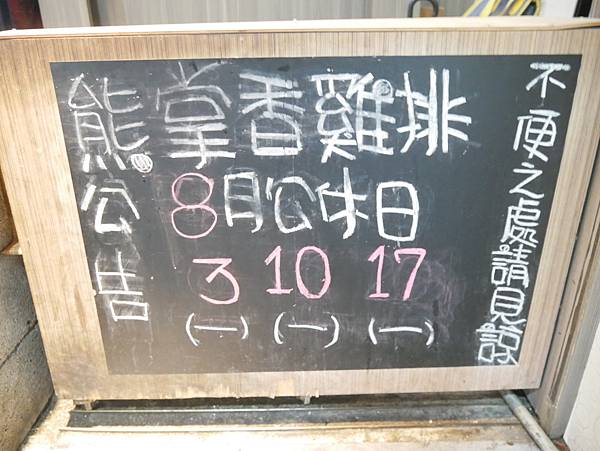 熊掌香雞排
公告
8月公休日
3 10 17
(一) (一) (一)
不便之處請見諒